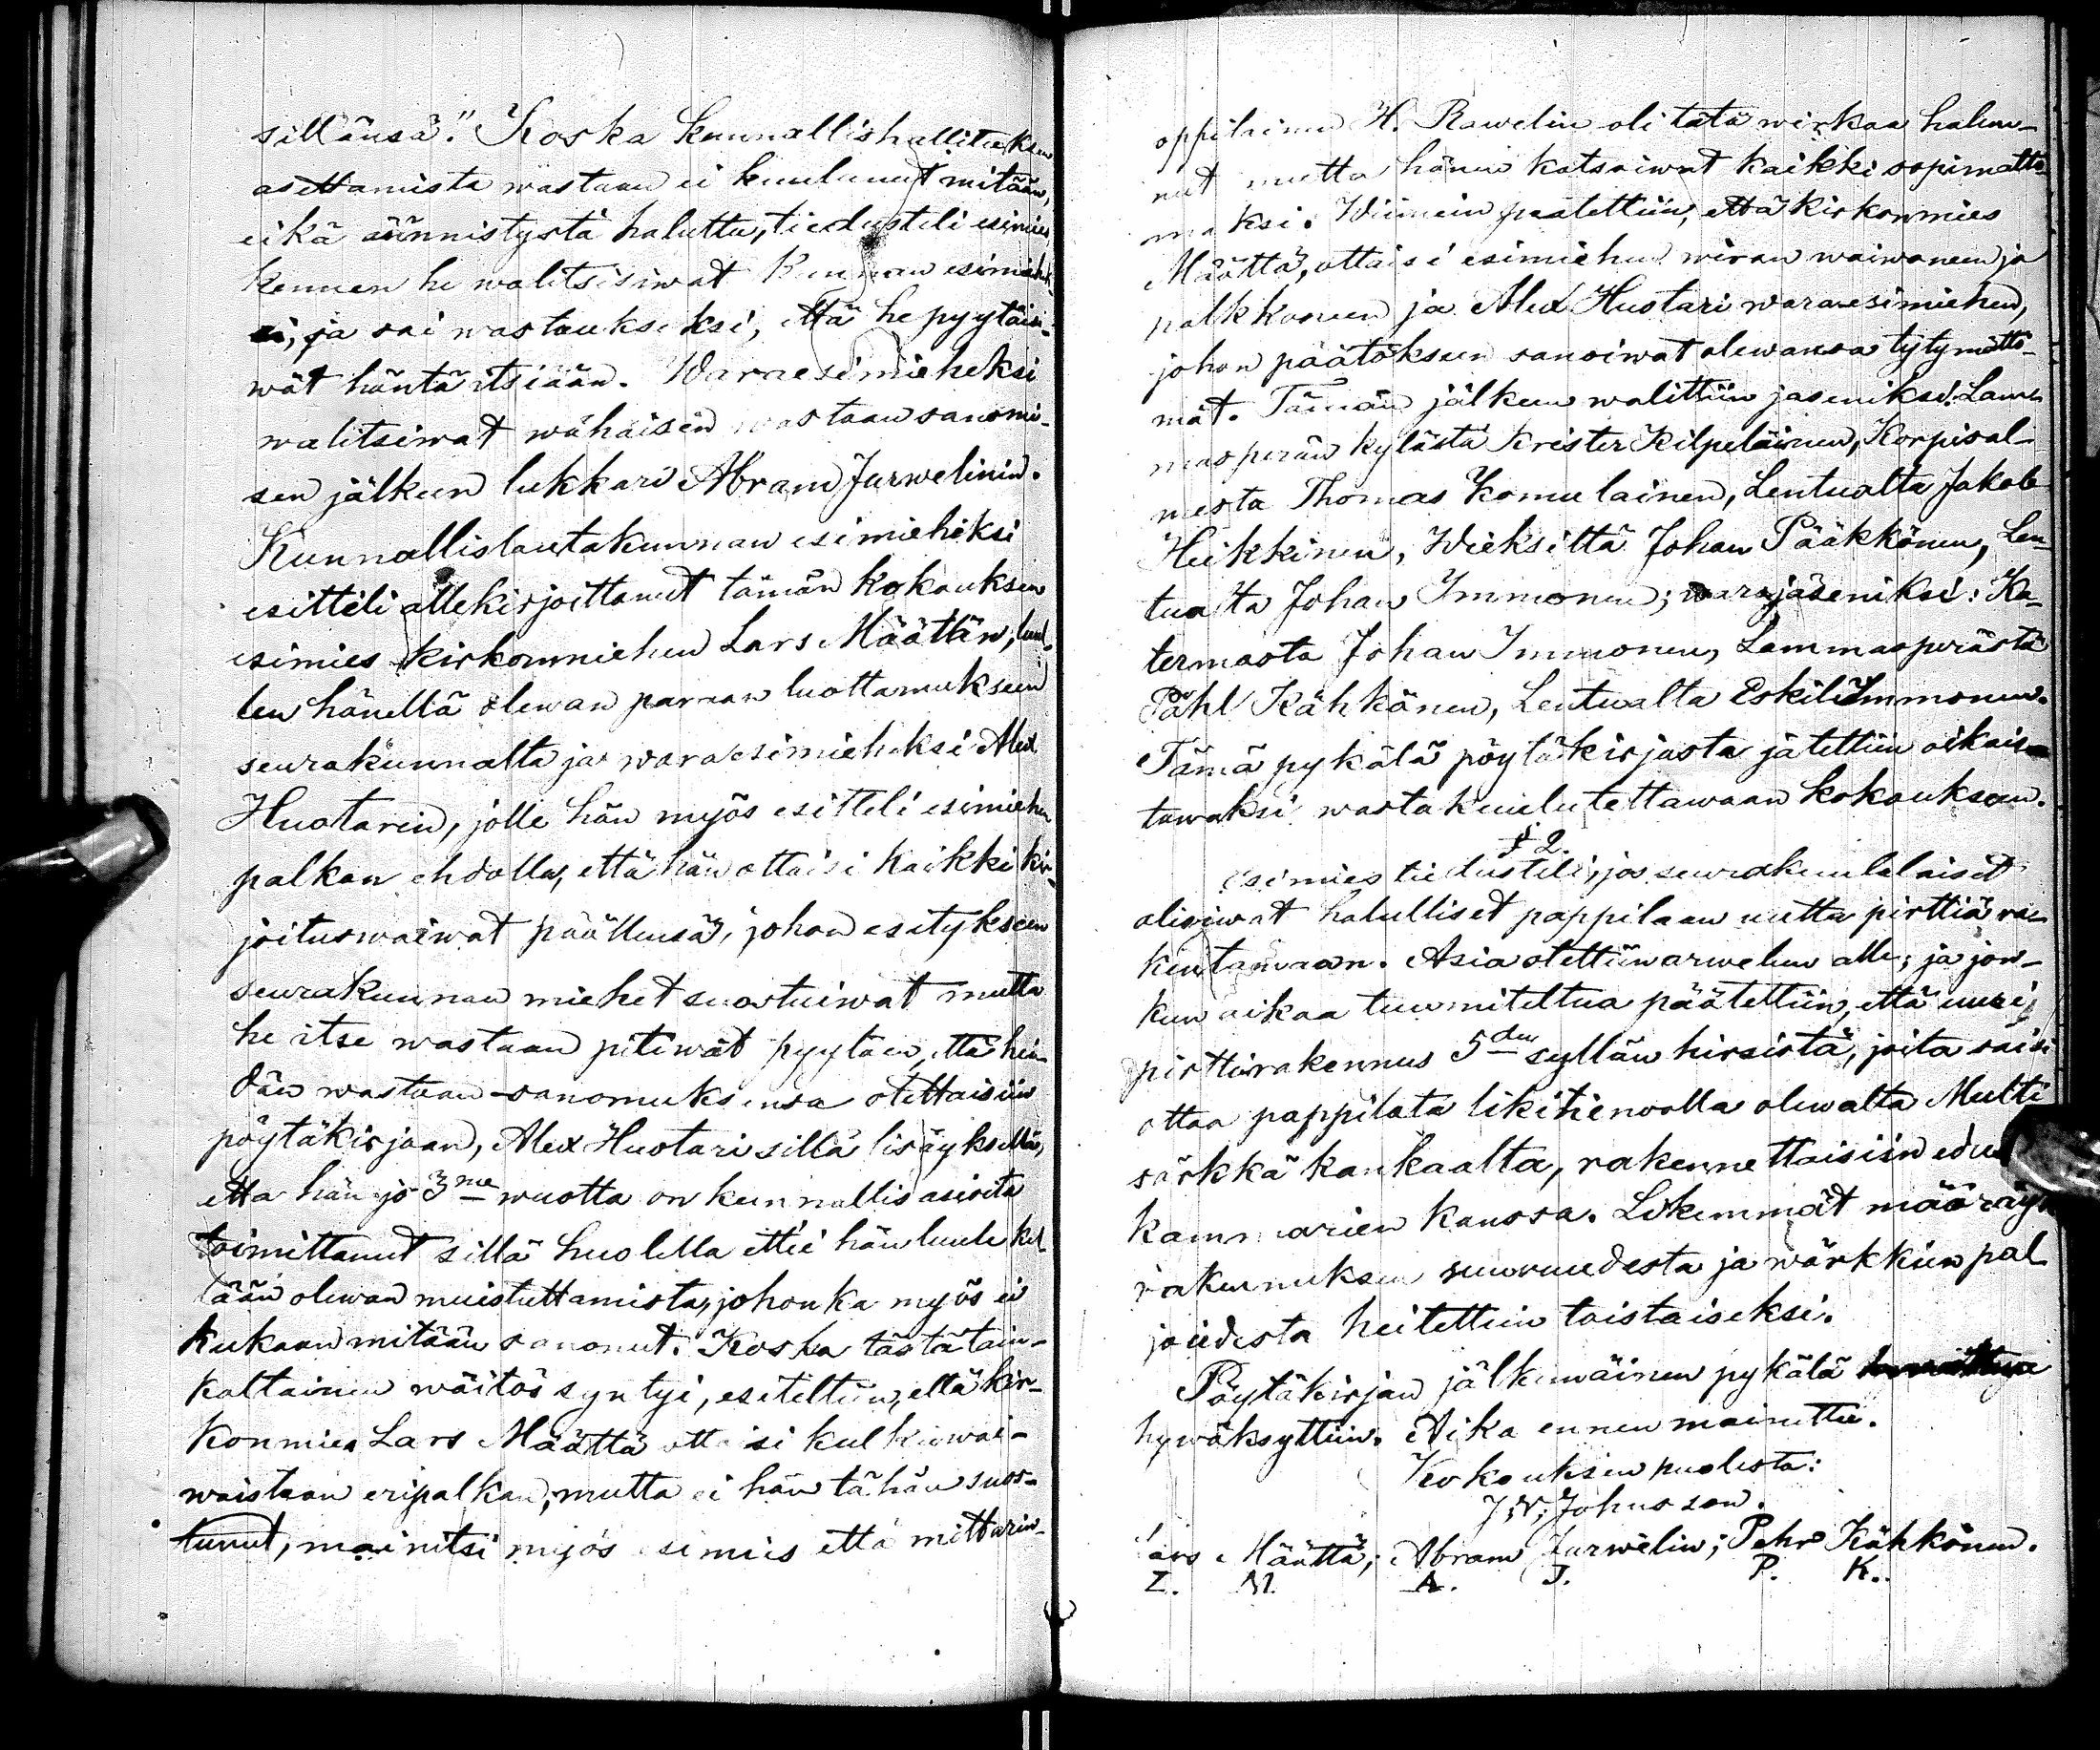 sillänsä." Koska kunnallishallituksen
asettamista wastaan ei kuulunut mitään,
eikä äännistystä haluttu, tiedusteli esimies,
kennen he walitsisiwat Kunnan esimiehek-
si, ja sai wastaukseksi, että he pyytäisi-
wät häntä itsiään. Waraesimieheksi
walitsiwat wähäisen wastaansanomi-
sen jälkeen lukkari Abram Jurwelinin.
Kunnallislautakunnan esimieheksi
esitteli allekirjoittanut tämän kokouksen
esimies kirkonmiehen Lars Määttän, luul-
len hänellä olewan parraan luottamuksen
seurakunnalta ja waraesimieheksi Alex
Huotarin, jolle hän myös esitteli esimiehen
palkan ehdolla, että hän ottaisi kaikki kir-
joituswaiwat päällensä, johon esitykseen
seurakunnan miehet suostuiwat mutta
he itse wastaan pitiwät pyytäen, että hei-
dän wastaan-sanomuksensa otettaisiin
pöytäkirjaan, Alex Huotari sillä lisäyksellä,
että hän jo 3me wuotta on kunnallis asioita
toimittanut sillä huolella ettei hän luule kel-
lään olewan muistuttamista, johonka myös ei
kukaan mitään sanonut. Koska tästä tain-
kaltainen wäitös syntyi, esiteltiin, että kir-
konmies Lars Määttä ottaisi kulkuwai-
waistaan eripalkan, mutta ei hän tähän suos-
tunut, mainitsi myös esimies että mittarin-
oppilainen H. Rawelin oli tätä wirkaa halun-
nut mutta hänen katsoiwat kaikki sopimatto-
maksi. Wiimein päätettiin, että kirkonmies
Määttä, ottaisi esimiehen wiran waiwoneen ja
palkkoneen ja Alex Huotari waraesimiehen,
johon päätökseen sanoiwat olewansa tytymättö-
mät. Tämän jälkeen walittiin jäseniksi: Lam-
masperän kylästä Krister Kilpeläinen, Korpisal-
mesta Thomas Komulainen, Lentualta Jakob
Heikkinen, Wieksiltä Johan Pääkkönen, Len-
tualta Johan Immonen; warajäseniksi: Ka-
termasta Johan Immonen, Lammasperästä
Påhl Kähkönen, Lentualta Eskil Immonen.
Tämä pykälä pöytäkirjasta jätettiin oikais-
tawaksi wasta kuulutettawaan kokouksen.
§ 2.
Esimies tiedusteli, jos seurakuntalaiset
olisiwat halulliset pappilaan uutta pirttiä ra-
kentamaan. Asia otettiin arwelun alle, ja jon-
kun aikaa tuumiteltua päätettiin, että uusi
pirttirakennus 5den syllän hirsistä, joita saisi
ottaa pappilata likitienoolla olewalta Multi
särkkä kankaalta, rakennettaisiin
kammarien kanssa. Likemmät määräyk
rakennuksen suuruudesta ja wärkkien pal-
joudesta heitettiin toistaiseksi.
Pöytäkirjan jälkimäinen pykälä
hywäksyttiin. Aika ennen mainittu.
Kokouksen puolesta:
J. W. Johnsson.
Lars Määttä; Abram Jurwelin; Pehr Kähkönen.
L. M. A. J. P. K.